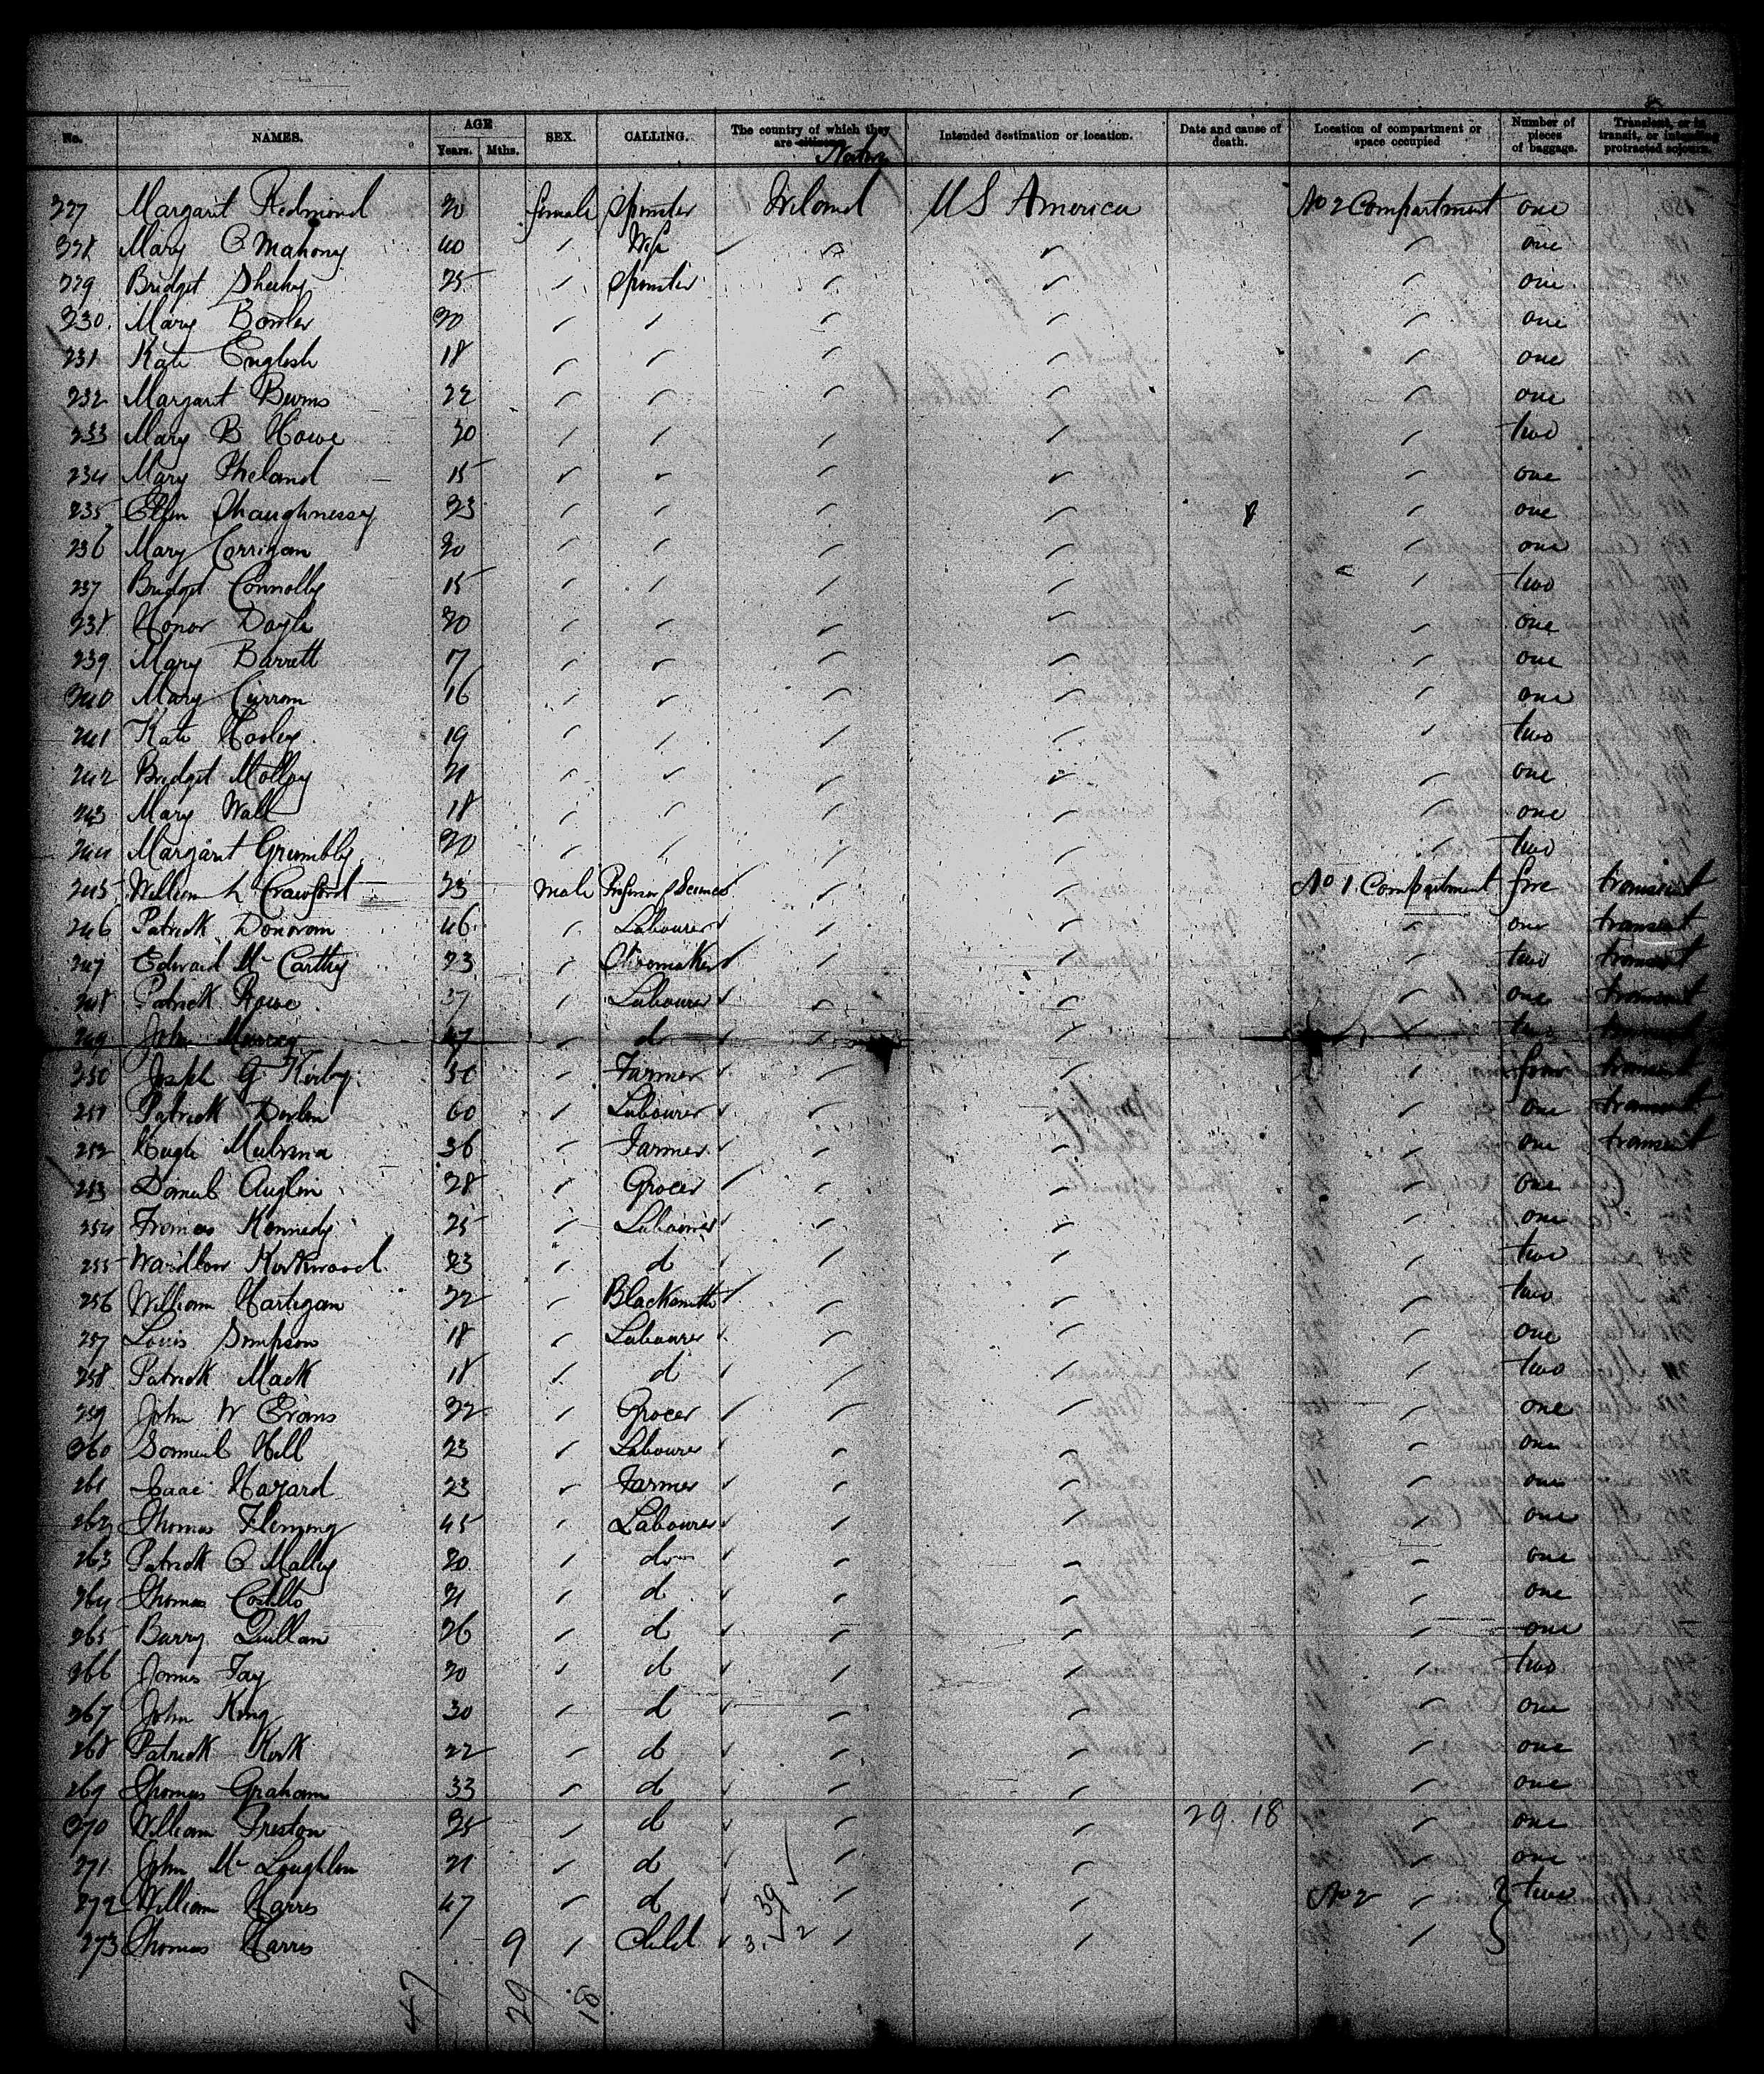 No. NAMES. AGE Years. Mths. SEX. CALLING. The country of which they are citizens Natives Intended destination or location. Date and cause of death. Location of compartment or space occupied Number of pieces of baggage. Transient, or in transit, or intending protracted sojourn.
227 Margaret Redmond 20 female Spinster Ireland US America No 2 Compartment one
228 Mary O Mahony 40 " Wife " " " one
229 Bridget Sheehy 25 " Spinster " " " one
230 Mary Bowler 20 " " " " " one
231 Kate English 18 " " " " " one
232 Margaret Burns 22 " " " " " one
233 Mary B Howe 20 " " " " " two
234 Mary Pheland 15 " " " " " one
235 Ellen Shaughnessy 23 " " " " " one
236 Mary Corrigan 20 " " " " " one
237 Bridget Connolly 15 " " " " " two
238 Honor Doyle 20 " " " " " one
239 Mary Barrett 17 " " " " " one
240 Mary Curran 16 " " " " " one
241 Kate 19 " " " " " two
242 Bridget Molloy 21 " " " " " one
243 Mary Wall 18 " " " " " one
244 Margaret Grumbly 20 " " " " " two
245 William L Crawford 23 male Professor of Science " " No 1 Compartment five transient
246 Patrick Donovan 46 " Labourer " " " one transient
247 Edward Mc Carthy 23 " Shoemaker " " " two transient
248 Patrick Rowe 37 " Labourer " " " one transient
249 John 47 " do " " " two transient
250 Joseph G Kirby " Farmer " " " four transient
251 Patrick Devlin 60 " Labourer " " " one transient
252 Hugh 36 " Farmer " " " one transient
253 Daniel Anglin 28 " Grocer " " " one
254 Kennedy 25 " Labourer " " " one
255 Kirkwood 23 " do " " " two
256 William Hartigan 22 " Blacksmith " " " two
257 Louis Simpson 18 " Labourer " " " one
258 Patrick Mack 18 " do " " " two
259 John W Evans 22 " Grocer " " " one
260 Samuel Hill 23 " Labourer " " " one
261 Isaac Hazard 23 " Farmer " " " one
262 Thomas Fleming 45 " Labourer " " " one
263 Patrick O Malley 20 " do " " " one
264 Thomas Costello 21 " do " " " one
265 Barry Quillan 26 " do " " " one
266 James Fay 20 " do " " " two
267 John King 30 " do " " " one
268 Patrick Kirk 22 " do " " " one
269 Thomas Graham 33 " do " " " one
270 William Preston 25 " do " " 29. 18 " one
271 John Mc Loughlin 21 " do " " " one
272 William Harris 47 " do 39 " " No 2 " two
273 Thomas Harris 9 " Child 3. 2 " " "
47 29 18